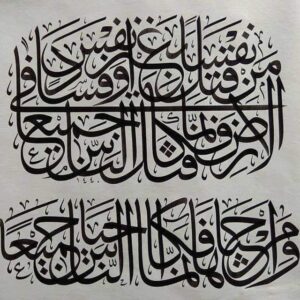 من قتل نفسا بغير نفس أو فساد في
الأرض فكأنما قتل الناس جميعا
ومن أحياها فكأنما أحيا الناس جميعا